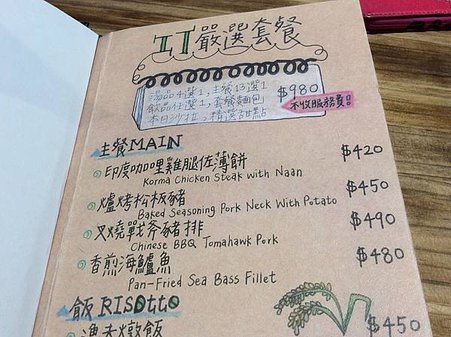 嚴選套餐
湯品4選1, 主餐13選1
飲品任選1, 套餐麵包
本日沙拉, 精選甜點
$980
不收服務費
主餐MAIN
印度咖哩雞腿佐薄餅 $420
Korma Chicken Steak with Naan
爐烤松板豬 $450
Baked Seasoning Pork Neck With Potato
叉燒戰斧豬排 $490
Chinese BBQ Tomahawk Pork
香煎海鱸魚 $480
Pan-Fried Sea Bass Fillet
飯 RISOtto
漁夫燉飯 $450